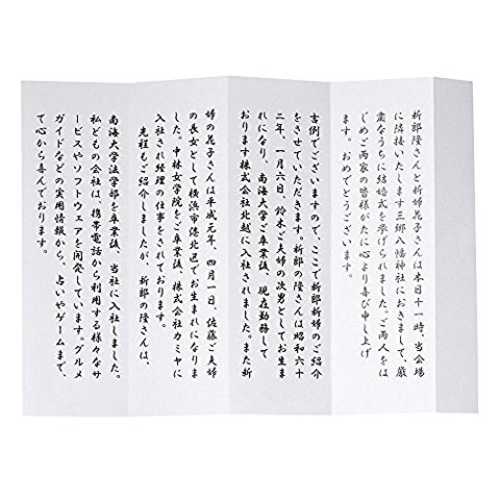 新郎隆さんと新婦花子さんは本日十一時、当会場
に隣接いたします三郷八幡神社におきまして、厳
粛なうちに結婚式を挙げられました。ご両人をは
じめご両家の皆様がたに心より喜び申し上げ
ます。おめでとうございます。
吉例でございますので、ここで新郎新婦のご紹介
をさせていただきます。新郎の隆さんは昭和六十
二年、一月六日、鈴木ご夫婦の次男としてお生ま
れになり、南海大学ご卒業後、現在勤務して
おります株式会社北越に入社されました。また新
婦の花子さんは平成元年、四月一日、佐藤ご夫婦
の長女として横浜市港北区でお生まれになりま
した。中林女学院をご卒業後、株式会社カミヤに
入社され経理の仕事をされております。
先程もご紹介しましたが、新郎の隆さんは、
南海大学法学部を卒業後、当社に入社しました。
私どもの会社は、携帯電話から利用する様々なサ
ービスやソフトウェアを開発しています。グルメ
ガイドなどの実用情報から、占いやゲームまで、
て心から喜んでおります。